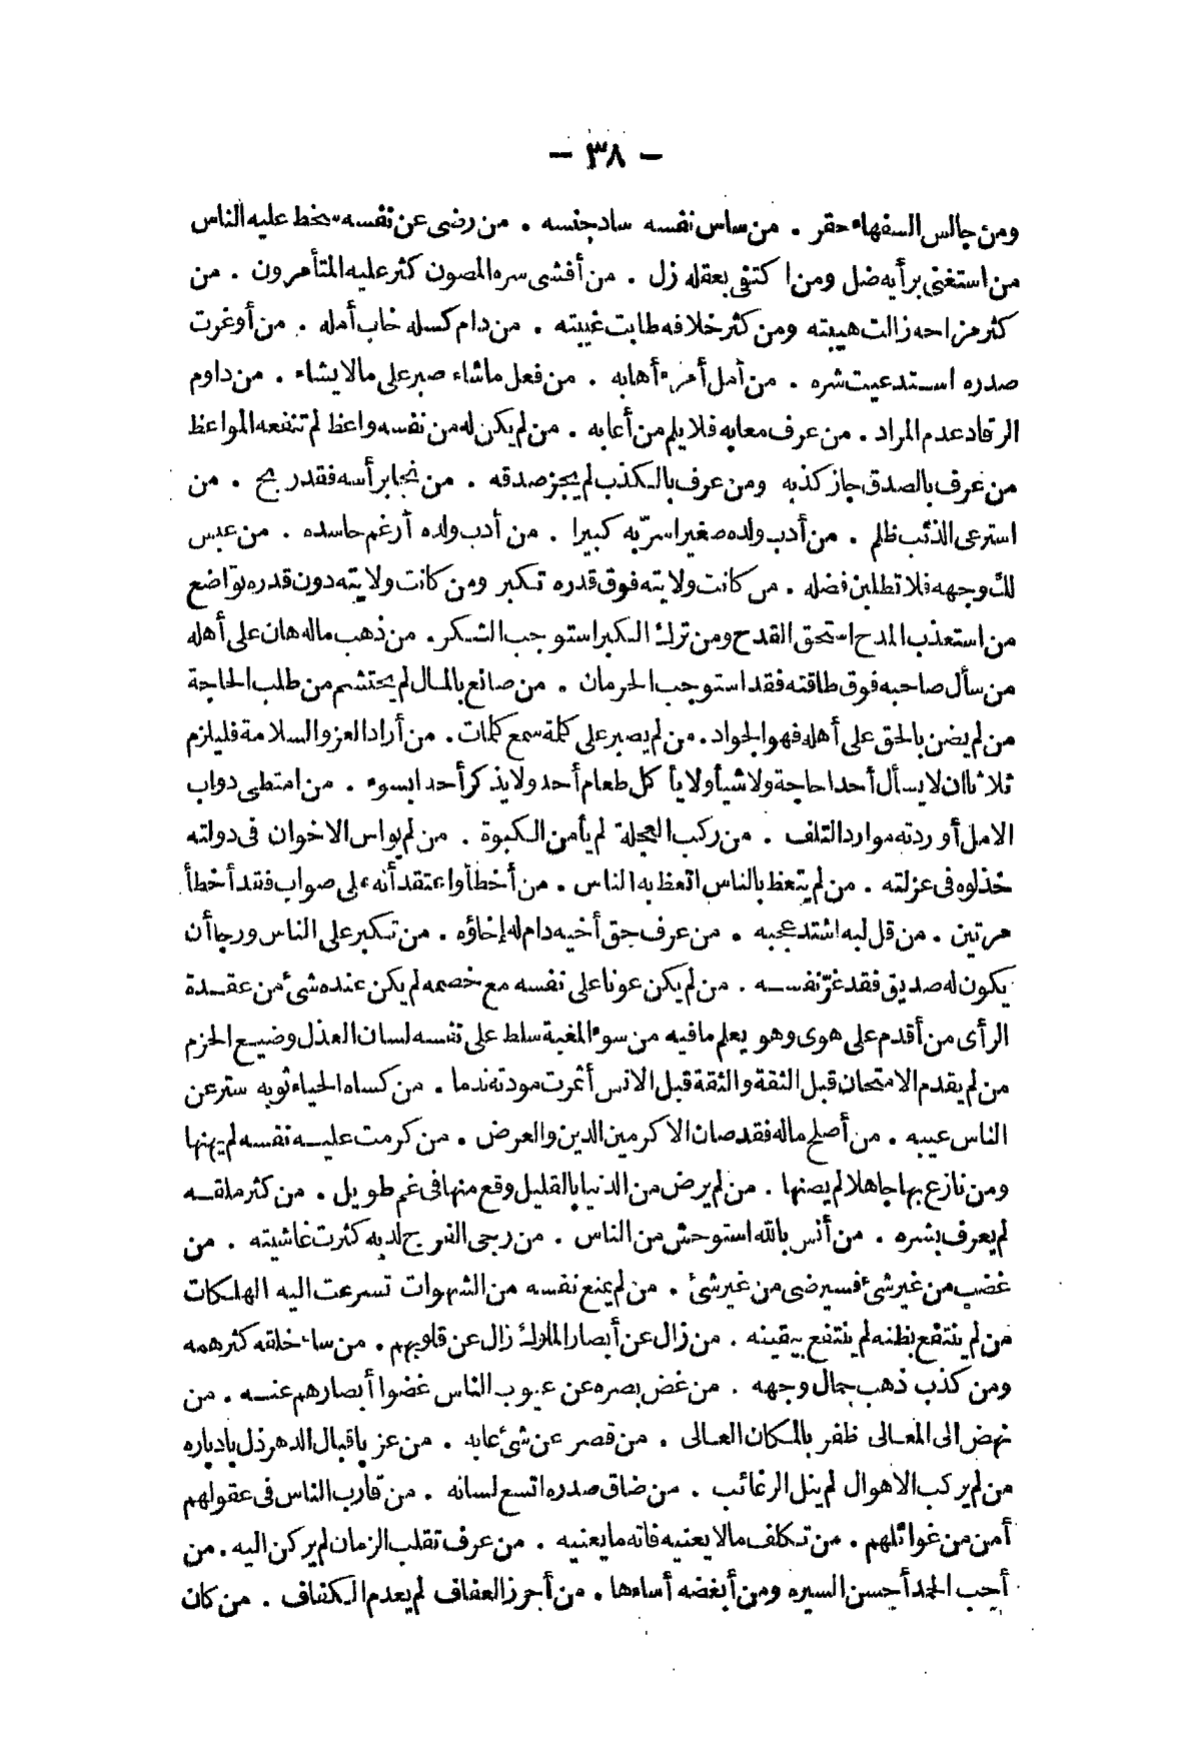 — ٣٨ —
ومن جالس السفهاء حقر . من ساس نفسه ساد جنسه . من رضى عن نفسه سخط عليه الناس
من استغنى برأيه ضل ومن اكتفى بعقله زل . من أفشى سره المصون كثر عليه المتأمرون . من
كثر مزاحه زالت هيبته ومن كثر خلافه طابت غيبته . من دام كسله خاب أمله . من أوغرت
صدره استدعيت شره . من أمل أمرء أهابه . من فعل ماشاء صبر على مالا يشاء . من داوم
الرقاد عدم المراد . من عرف معابه فلا يلم من أعابه . من لم يكن له من نفسه واعظ لم تنفعه المواعظ
من عرف بالصدق جاز كذبه ومن عرف بالكذب لم يجز صدقه . من نجا برأسه فقد ربح . من
استرعى الذئب ظلم . من أدب ولده صغيرا سرّ به كبيرا . من أدب ولده أرغم حاسده . من عبس
لك وجهه فلا تطلبن فضله . من كانت ولايته فوق قدره تكبر ومن كانت ولايته دون قدره تواضع
من استعذب المدح استحق القدح ومن ترك الكبر استوجب الشكر . من ذهب ماله هان على أهله
من سأل صاحبه فوق طاقته فقد استوجب الحرمان . من صانع بالمال لم يحتشم من طلب الحاجة
من لم يضن بالحق على أهله فهو الجواد . من لم يصبر على كلمة سمع كلمات . من أراد العز والسلامة فليلزم
ثلاثا ان لا يسأل أحدا حاجة ولا شيأ ولا يأكل طعام أحد ولا يذكر أحدا بسوء . من امتطى دواب
الامل أوردته موارد التلف . من ركب العجلة لم يأمن الكبوة . من لم يواس الاخوان فى دولته
خذلوه فى عزلته . من لم يتعظ بالناس اتعظ به الناس . من أخطأ واعتقد أنه على صواب فقد أخطأ
مرتين . من قل لبه اشتد عجبه . من عرف حق أخيه دام له إخاؤه . من تكبر على الناس ورجا أن
يكون له صديق فقد غرّ نفسه . من لم يكن عونا على نفسه مع خصمه لم يكن عنده شئ من عقدة
الرأى من أقدم على هوى وهو يعلم مافيه من سوء المغبة سلط على نفسه لسان العذل وضيع الحزم
من لم يقدم الامتحان قبل الثقة والثقة قبل الانس أثمرت مودته ندما . من كساه الحياء ثوبه ستر عن
الناس عيبه . من أصلح ماله فقد صان الاكرمين الدين والعرض . من كرمت عليه نفسه لم يهنها
ومن نازع بها جاهلا لم يصنها . من لم يرض من الدنيا بالقليل وقع منها فى غم طويل . من كثر ملقه
لم يعرف بشره . من أنس بالله استوحش من الناس . من رجى الفرج لديه كثرت غاشيته . من
غضب من غير شئ فسيرضى من غير شئ . من لم يمنع نفسه من الشهوات تسرعت اليه الهلكات
من لم ينتفع بظنه لم ينتفع بيقينه . من زال عن أبصار الملوك زال عن قلوبهم . من ساء خلقه كثر همه
ومن كذب ذهب جمال وجهه . من غض بصره عن عيوب الناس غضوا أبصارهم عنه . من
نهض الى المعالى ظفر بالمكان العالى . من قصر عن شئ عابه . من عز باقبال الدهر ذل بادباره
من لم يركب الاهوال لم ينل الرغائب . من ضاق صدره اتسع لسانه . من قارب الناس فى عقولهم
أمن من غوائلهم . من تكلف مالا يعنيه فاته مايعنيه . من عرف تقلب الزمان لم يركن اليه . من
أحب الحمد أحسن السيره ومن أبغضه أساءها . من أحرز العفاف لم يعدم الكفاف . من كان